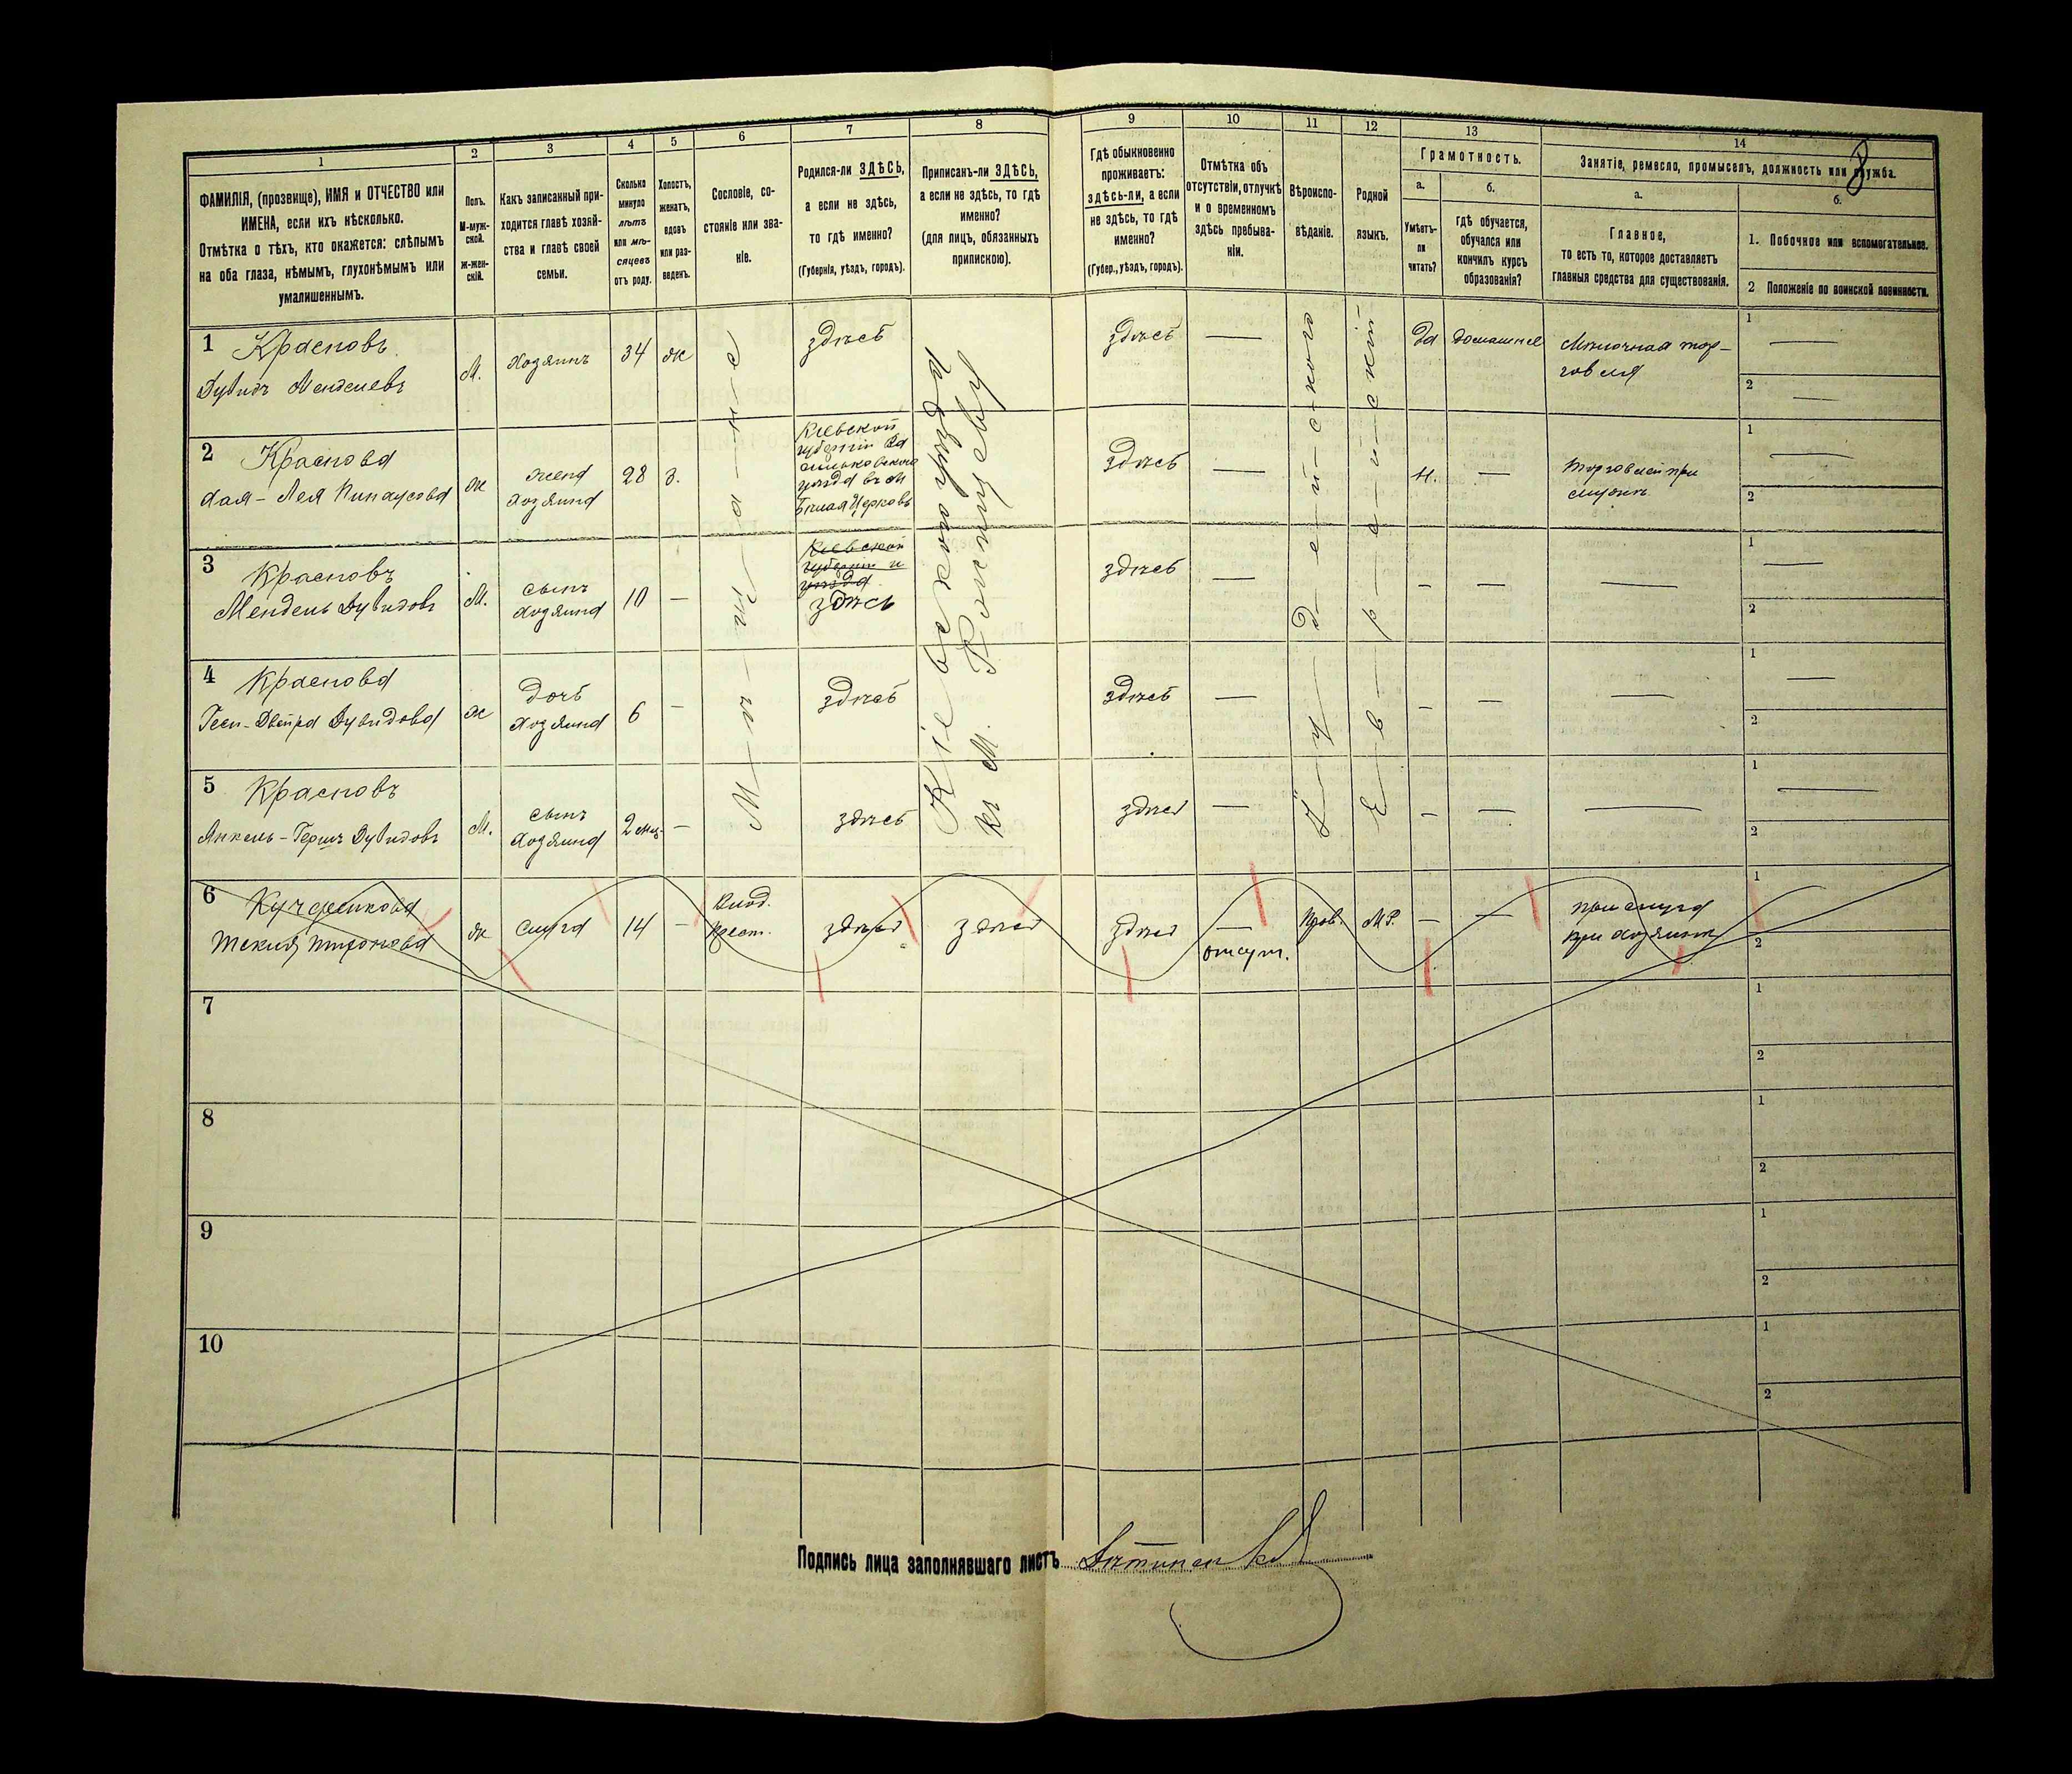 1 2 3 4 5 6 7 8 9 10 11 12 13 14
8
ФАМИЛІЯ, (прозвище), ИМЯ и ОТЧЕСТВО или
ИМЕНА, если ихъ нѣсколько.
Отмѣтка о тѣхъ, кто окажется: слѣпымъ
на оба глаза, нѣмымъ, глухонѣмымъ или
умалишеннымъ.
Полъ.
М-муж-
ской.
Ж-жен-
скій.
Какъ записанный при-
ходится главѣ хозяй-
ства и главѣ своей
семьи.
Сколько
минуло
лѣтъ
или мѣ-
сяцевъ
отъ роду.
Холостъ,
женатъ,
вдовъ
или раз-
веденъ.
Сословіе, со-
стояніе или зва-
ніе.
Родился-ли ЗДѢСЬ,
а если не здѣсь,
то гдѣ именно?
(Губернія, уѣздъ, городъ).
Приписанъ-ли ЗДѢСЬ,
а если не здѣсь, то гдѣ
именно?
(для лицъ, обязанныхъ
припискою).
Гдѣ обыкновенно
проживаетъ:
здѣсь-ли, а если
не здѣсь, то гдѣ
именно?
(Губер., уѣздъ, городъ).
Отмѣтка объ
отсутствіи, отлучкѣ
и о временномъ
здѣсь пребыва-
ніи.
Вѣроиспо-
вѣданіе.
Родной
языкъ.
Грамотность.
а.
Умѣетъ-
ли
читать?
б.
Гдѣ обучается,
обучался или
кончилъ курсъ
образованія?
Занятіе, ремесло, промыселъ, должность или служба.
а.
Главное,
то есть то, которое доставляетъ
главныя средства для существованія.
б.
1. Побочное или вспомогательное.
2 Положеніе по воинской повинности.
М-ѣ-щ-а-н-е
Кіевского уѣзда
къ м.
І-у-д-е-й-с-кого
Е-в-р-е-й-скій
1 Красновъ
Дувидъ Менделевъ
М. Хозяинъ 34 ж здѣсь здѣсь — да домашнее
Мелочная тор-
говля
1 —
2 —
2 Краснова
Лея
ж жена
хозяина
28 з.
Кіевской
губерніи Ва
сильковского
уѣзда въ м
Бѣлая Церковь
здѣсь — н. —
торговлей при
1 —
2
3 Красновъ
Мендель Дувидовъ
М. сынъ
хозяина
10 —
Кіевской
губерніи и
уѣзда
здѣсь
здѣсь — - — —
1 —
2
4 Краснова
Двейра Дувидова
ж дочь
хозяина
6 - здѣсь здѣсь — - — —
1 —
2
5 Красновъ
Янкель-Гершъ Дувидовъ
М. сынъ
хозяина
2 мѣс. - здѣсь здѣсь — - — —
1 —
2
6
ж слуга 14 -
крест.
здѣсь здѣсь здѣсь —
отсут.
Прав. М.Р. — —
прислуга
при хозяинѣ
1
2
7 1
2
8 1
2
9 1
2
10 1
2
Подпись лица заполнявшаго листъ